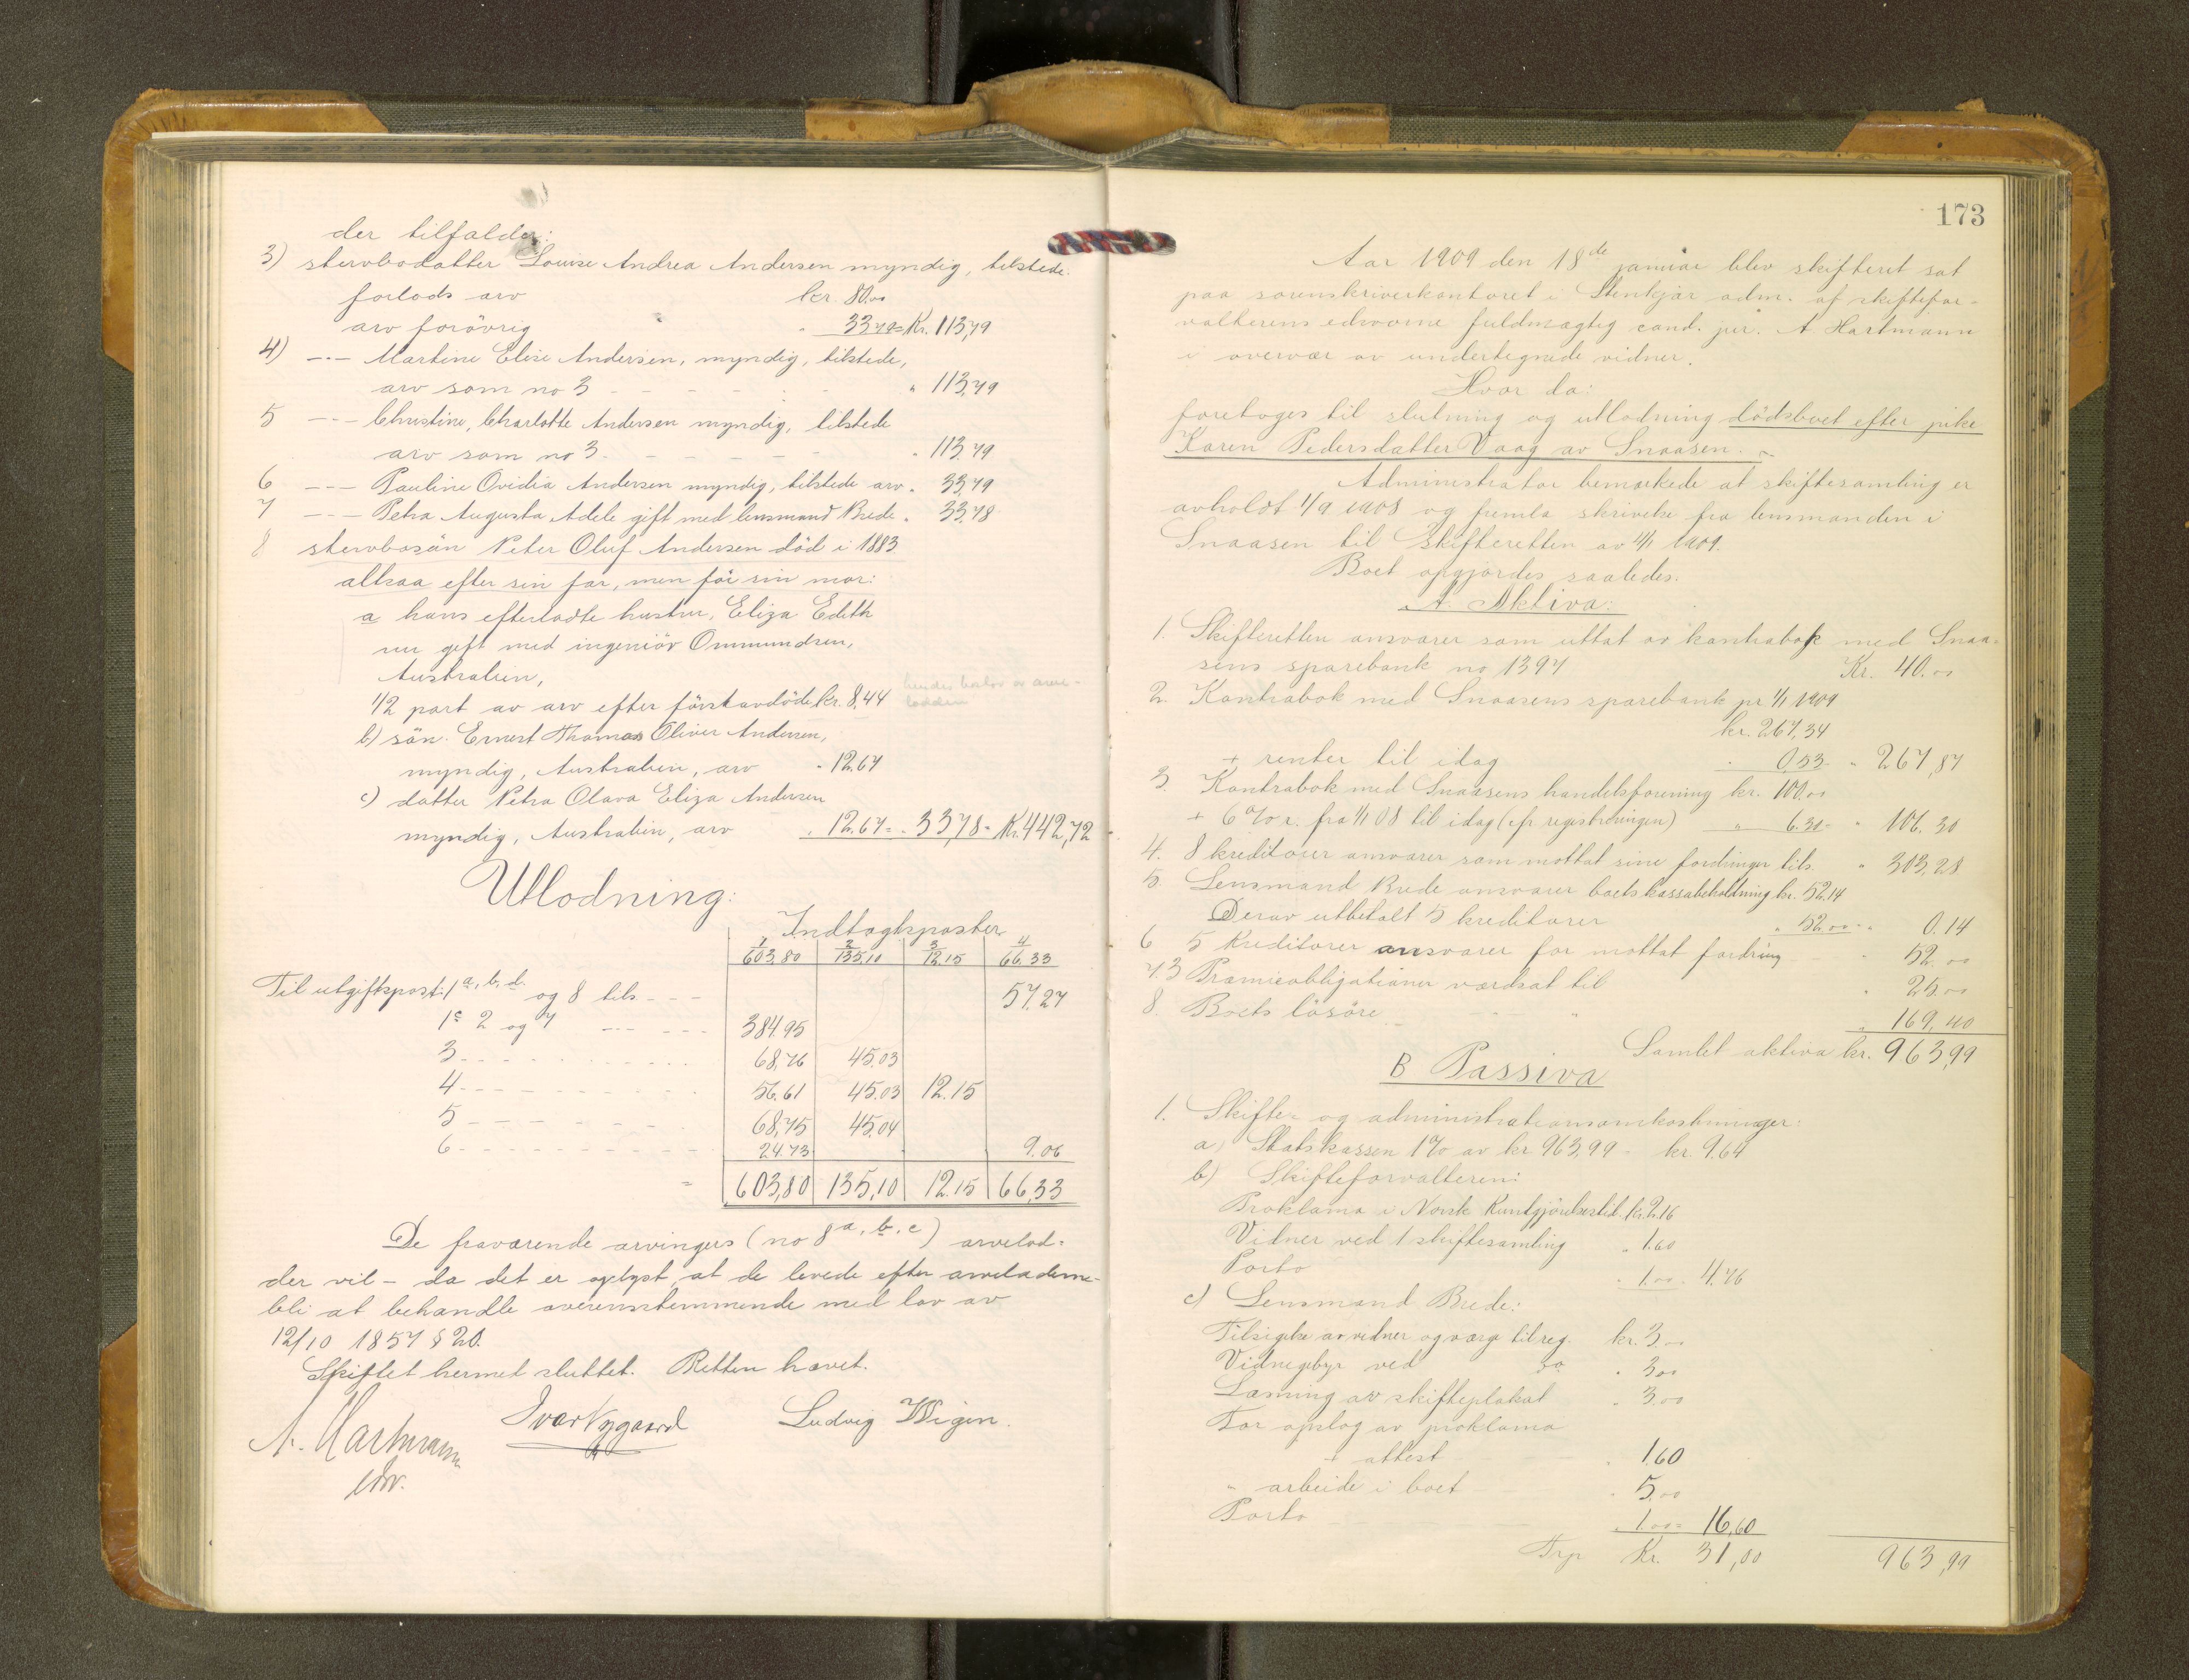 der tilfalder:
3) stervbodatter Louise Andrea Andersen myndig, tilstede.
forlods arv kr. 80.00
arv forövrig " 33.79 = Kr. 113,79
4) -"- Martine Elise Andersen, myndig, tilstede,
arv som no 3 - - - - - " 113,79
5 -"- Christine Charlotte Andersen myndig, tilstede
arv som no 3. - - - - - " 113.79
6 -"- Pauline Ovidia Andersen myndig, tilstede arv " 33,79
7 -"- Petra Augusta Adele gift med lensmand Brede " 33.78
8 stervbosön Peter Oluf Andersen död i 1883
altsaa efter sin far, men för sin mor:
a hans efterladte hustru, Eliza Edith
nu gift med ingeniör Ommundsen,
Australien,
1/2 part av arv efter förstavdöde kr. 8,44
b) sön. Ernest Thomas Oliver Andersen,
myndig, Australien, arv " 12.67
c) datter Petra Olava Eliza Andersen
myndig, Australien, arv " 12.67 = " 33,78 = Kr. 442,72
Utlodning:
Indtægtsposter
1 2 3 4
603,80 135,10 12.15 66,33
Til utgiftspost: 1 a, b, d. og 8 tils - - - 57,27
1c 2 og 7 - - - 384.95
3 - - - 68,76 45.03
4 - - - 56.61 45.03 12.15
5 - - - 68,75 45,04
6 - - - 24.73 9.06
= 603,80 135,10 12.15 66,33
De fraværende arvingers (no 8 a, b, c) arvelod=
der vil - da det er oplyst at de levede efter arveladerne -
bli at behandle overensstemmende med lov av
12/10 1857 § 20.
Skiftet hermed sluttet. Retten hævet.
A. Hartmann Ivar Nygaard Ludvig Wigen.
edsv.
173
Aar 1909 den 18de januar blev skifteret sat
paa sorenskriverkontoret i Stenkjær adm. af skiftefor-
valterens edsvorne fuldmægtig cand. jur. A Hartmann
i overvær av undertegnede vidner.
Hvor da:
foretoges til slutning og utlodning dödsboet efter pike
Karen Pedersdatter Vaag av Snaasen.
Administrator bemærkede at skiftesamling er
avholdt 1/9 1908 og fremla skrivelse fra lensmanden i
Snaasen til Skifteretten av 4/1 1909.
Boet opgjordes saaledes.
A. Aktiva:
1. Skifteretten ansvarer som uttat av kontrabok med Snaa-
sens sparebank no 1397 Kr. 40.00
2. Kontrabok med Snaasens sparebank pr 1/1 1909
kr. 267,34
+ renter til idag " 0,53 " 267,87
3. Kontrabok med Snaasens handelsforening kr. 100.00
+ 6 % r. fra 1/1 08 til idag (cfr registreringen) " 6.30 = " 106.30
4. 8 kreditorer ansvarer som mottat sine fordringer tils. " 303,28
5. Lensmand Brede ansvarer boets kassabeholdning kr. 52.14
Derav utbetalt 5 kreditorer " 52.00 = " 0.14
6 5 Kreditorer ansvarer for mottat fordring " 52.00
7. 3 Præmieobligationer værdsat til " 25.00
8. Boets lösöre " 169,40
Samlet aktiva kr. 963,99
B Passiva
1. Skifte- og administrationsomkostninger:
a) Statskassen 1 % av kr 963,99 = kr. 9.64
b) Skifteforvalteren:
Proklama i Norsk Kundgjörelsestid. kr. 2.16
Vidner ved 1 skiftesamling " 1.60
Porto " 1.00 = 4.76
c) Lensmand Brede:
Tilsigelse av vidner og værge til reg. kr. 3.00
Vidnegebyr ved do " 3.00
Læsning av skifteplakat " 3.00
For opslag av proklama
+ attest " 1.60
" arbeide i boet " 5.00
Porto " 1.00 = 16,60
Trp Kr. 31,00 963,99